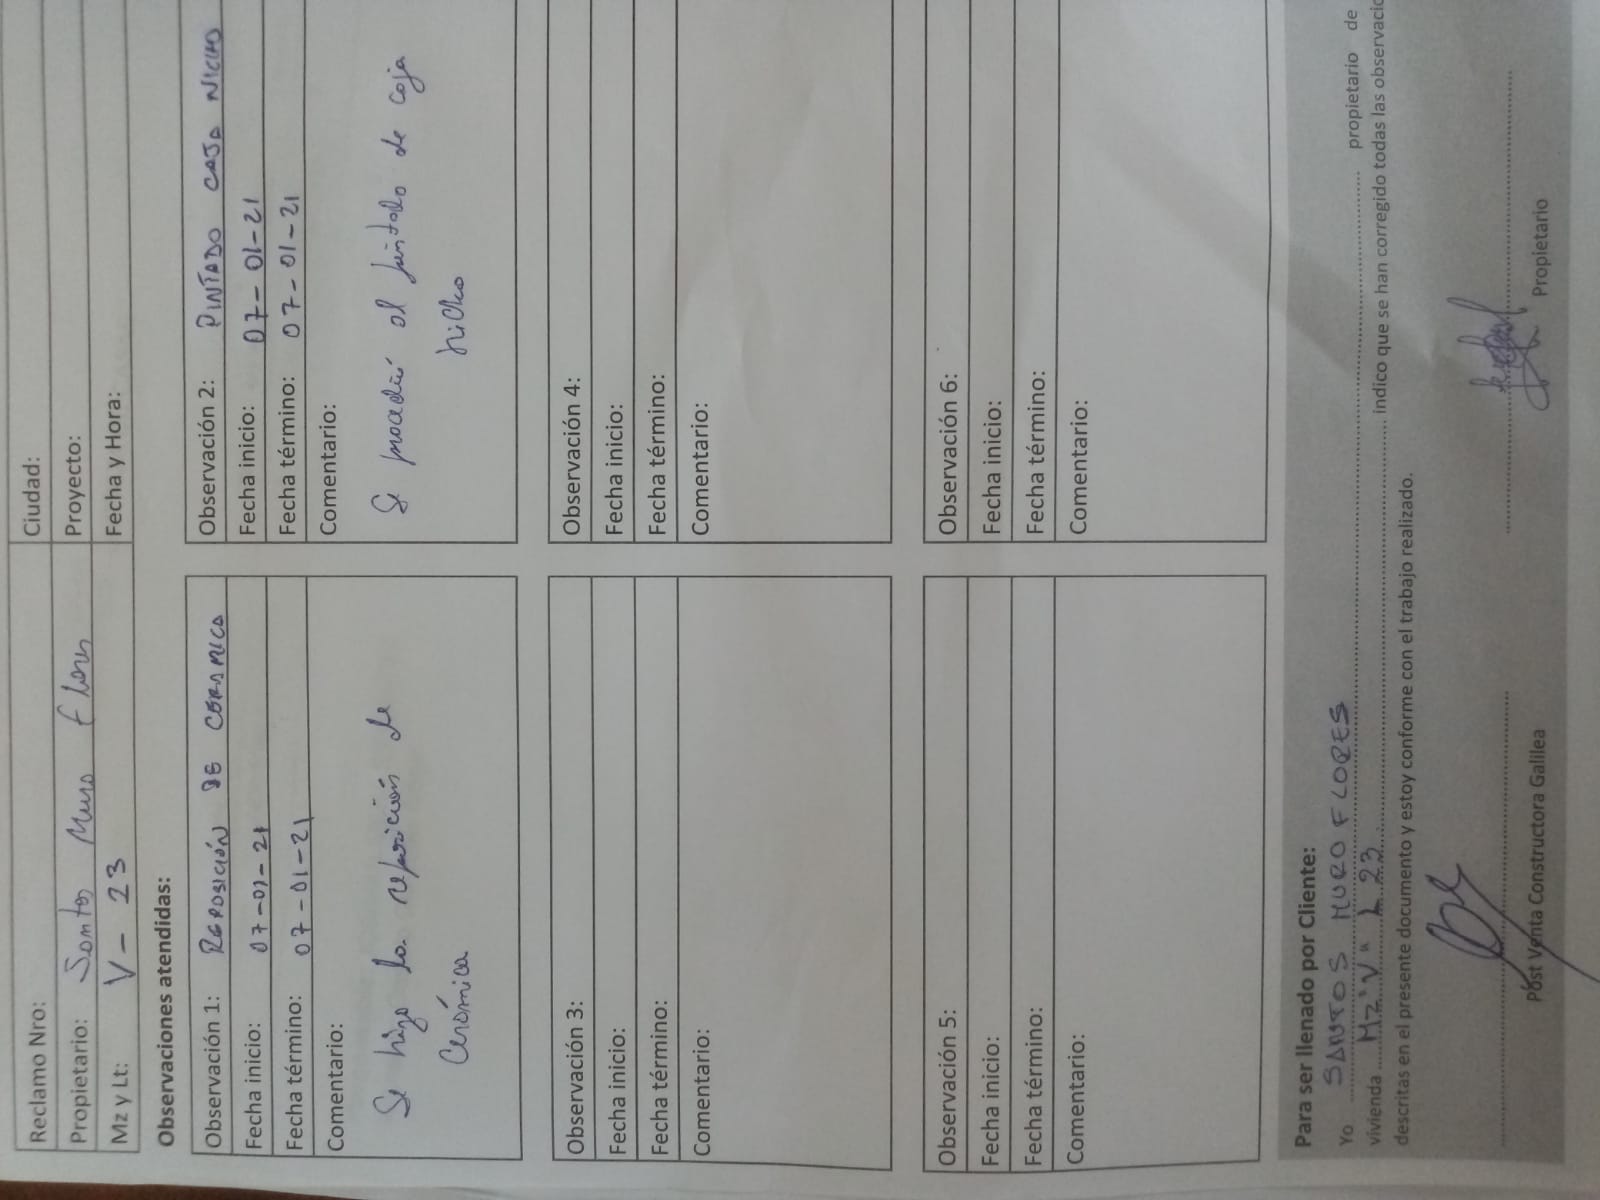 Reclamo Nro: Ciudad:
Propietario: Santos Muro Flores Proyecto:
Mz y Lt: V - 23 Fecha y Hora:
Observaciones atendidas:
Observación 1: REPOSICIÓN DE CERAMICA
Fecha inicio: 07-01-21
Fecha término: 07-01-21
Comentario:
Se hizo la reparición de
Cerámica
Observación 2: PINTADO CAJA NICHO
Fecha inicio: 07-01-21
Fecha término: 07-01-21
Comentario:
Se procedió al pintado de caja
nicho
Observación 3:
Fecha inicio:
Fecha término:
Comentario:
Observación 4:
Fecha inicio:
Fecha término:
Comentario:
Observación 5:
Fecha inicio:
Fecha término:
Comentario:
Observación 6:
Fecha inicio:
Fecha término:
Comentario:
Para ser llenado por Cliente:
Yo SANTOS MURO FLORES propietario de
vivienda Mz "V" L 23 indico que se han corregido todas las observacio
descritas en el presente documento y estoy conforme con el trabajo realizado.
Post Venta Constructora Galilea Propietario